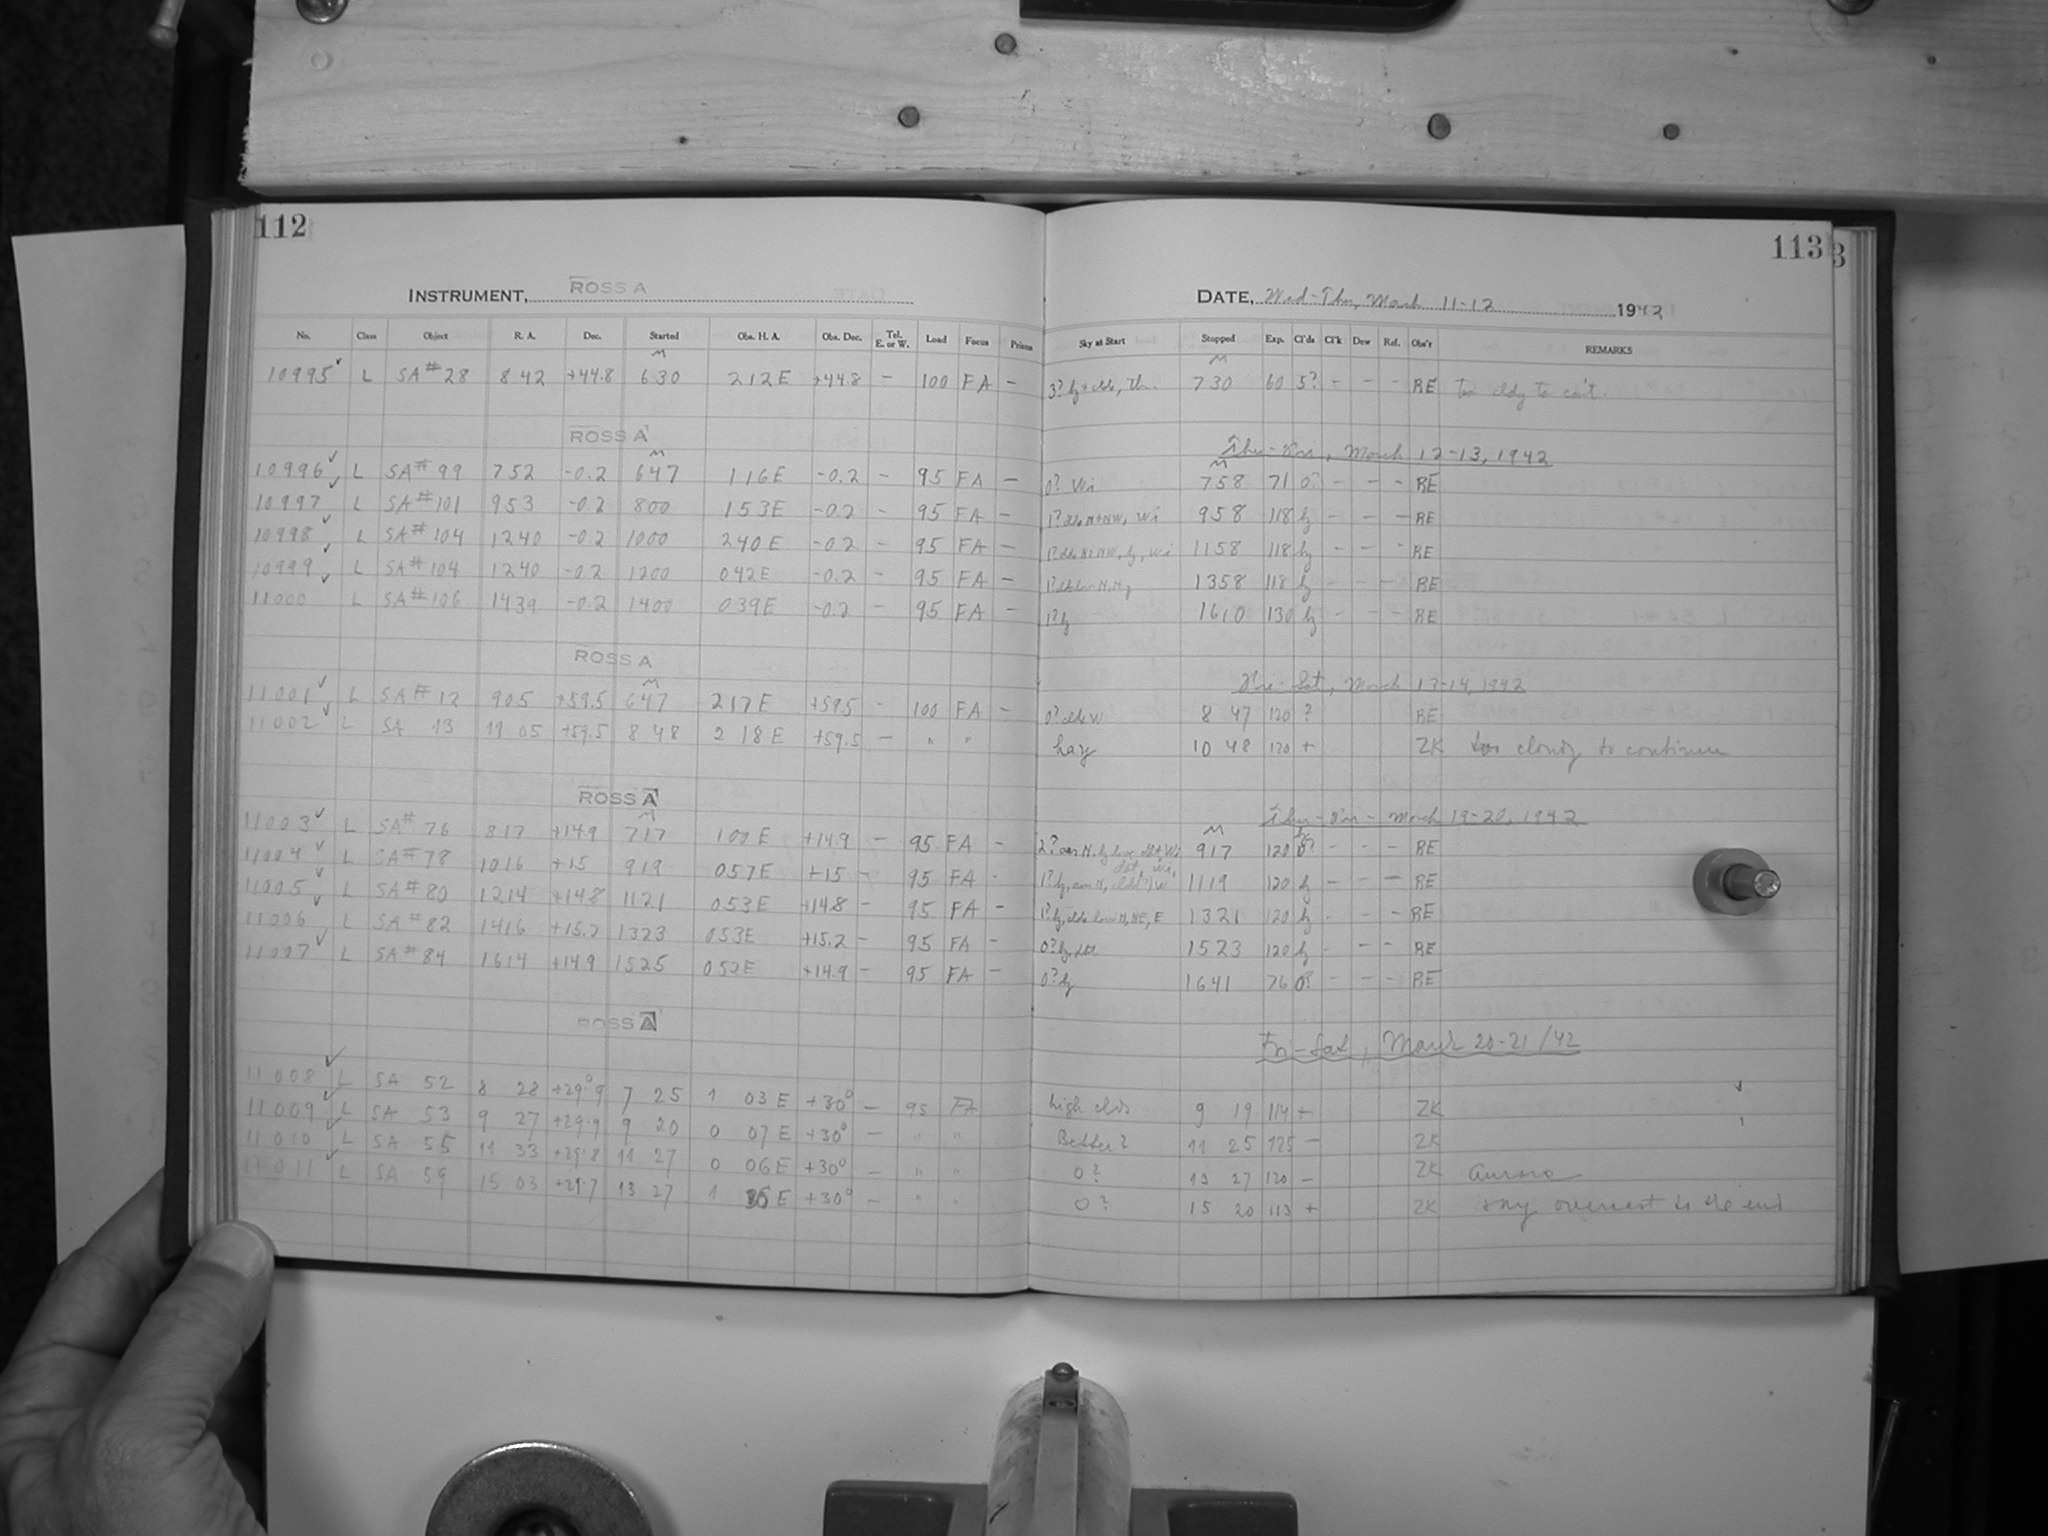 112
113
INSTRUMENT, ROSS A
DATE, Wed-Thu, March 11-12 1942
No. Class Object R. A. Dec. Started Obs. H. A. Obs. Dec. Tel. E. or W. Load Focus Prism Sky at Start Stopped Exp. Cl'ds Cl'k Dew Ref. Obs'r REMARKS
10995 L SA #28 8 42 +44.8 6 30 2 12 E +44.8 - 100 FA - 7 30 60 5? - - - RE Too cldy to con't.
ROSS A Thu-Fri, March 12-13, 1942
10996 L SA #99 7 52 -0.2 6 47 1 16 E -0.2 - 95 FA - 0? Wi 7 58 71 0? - - - RE
10997 L SA #101 9 53 -0.2 8 00 1 53 E -0.2 - 95 FA - 1? clds N+NW, Wi 9 58 118 hz - - - RE
10998 L SA #104 12 40 -0.2 10 00 2 40 E -0.2 - 95 FA - 11 58 118 hz - - - RE
10999 L SA #104 12 40 -0.2 12 00 0 42 E -0.2 - 95 FA - 13 58 118 hz - - - RE
11000 L SA #106 14 39 -0.2 14 00 0 39 E -0.2 - 95 FA - 1? hz 16 10 130 hz - - - RE
ROSS A Fri-Sat, March 13-14, 1942
11001 L SA #12 9 05 +59.5 6 47 2 17 E +59.5 - 100 FA - 0? clds W 8 47 120 ? RE
11002 L SA 13 11 05 +59.5 8 48 2 18 E +59.5 - " " hazy 10 48 120 + ZK too cloudy to continue
ROSS A Thu-Fri- March 19-20, 1942
11003 L SA #76 8 17 +14.9 7 17 1 00 E +14.9 - 95 FA - 9 17 120 0? - - - RE
11004 L SA #78 10 16 +15 9 19 0 57 E +15 - 95 FA - 11 19 120 hz - - - RE
11005 L SA #80 12 14 +14.8 11 21 0 53 E +14.8 - 95 FA - 1? hz, clds low N, NE, E 13 21 120 hz - - - RE
11006 L SA #82 14 16 +15.2 13 23 0 53 E +15.2 - 95 FA - 15 23 120 hz - - - RE
11007 L SA #84 16 14 +14.9 15 25 0 52 E +14.9 - 95 FA - 0? hz 16 41 76 0? - - - RE
ROSS A Fri-Sat, March 20-21/42
11008 L SA 52 8 28 +29°9 7 25 1 03 E +30° - 95 FA high clds 9 19 114 + ZK
11009 L SA 53 9 27 +29.9 9 20 0 07 E +30° - " " Better? 11 25 125 - ZK
11010 L SA 55 11 33 +29.8 11 27 0 06 E +30° - " " 0? 13 27 120 - ZK aurora
11011 L SA 59 15 03 +29.7 13 27 1 E +30° - " " 0? 15 20 113 + ZK sky overcast to the end